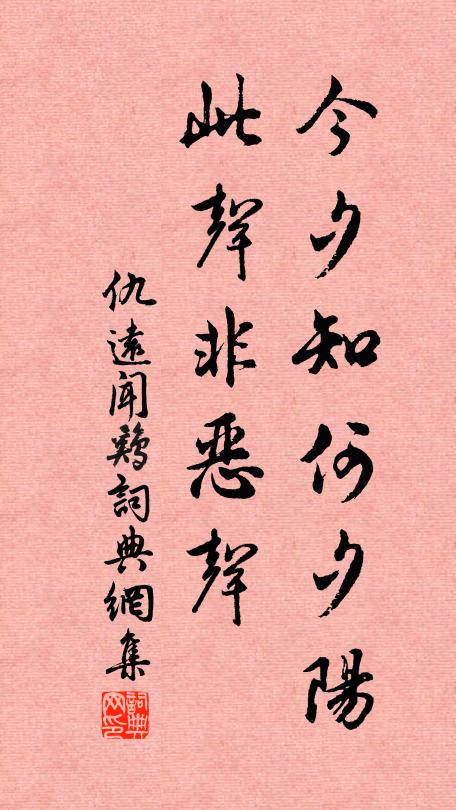 今夕知何夕陽
此聲非惡聲
仇遠聞鷄詞典網集
詞典网印